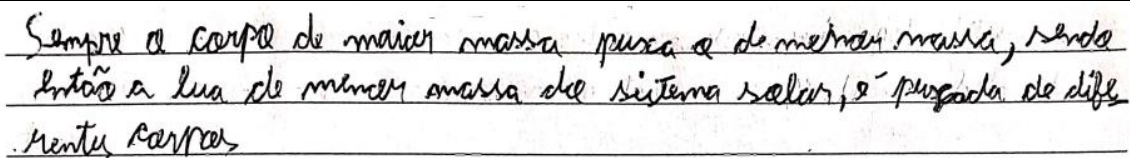 Sempre o corpo de maior massa puxa o de menor massa, sendo
então a lua de menor massa do sistema solar, é puxada de dife
rentes corpos